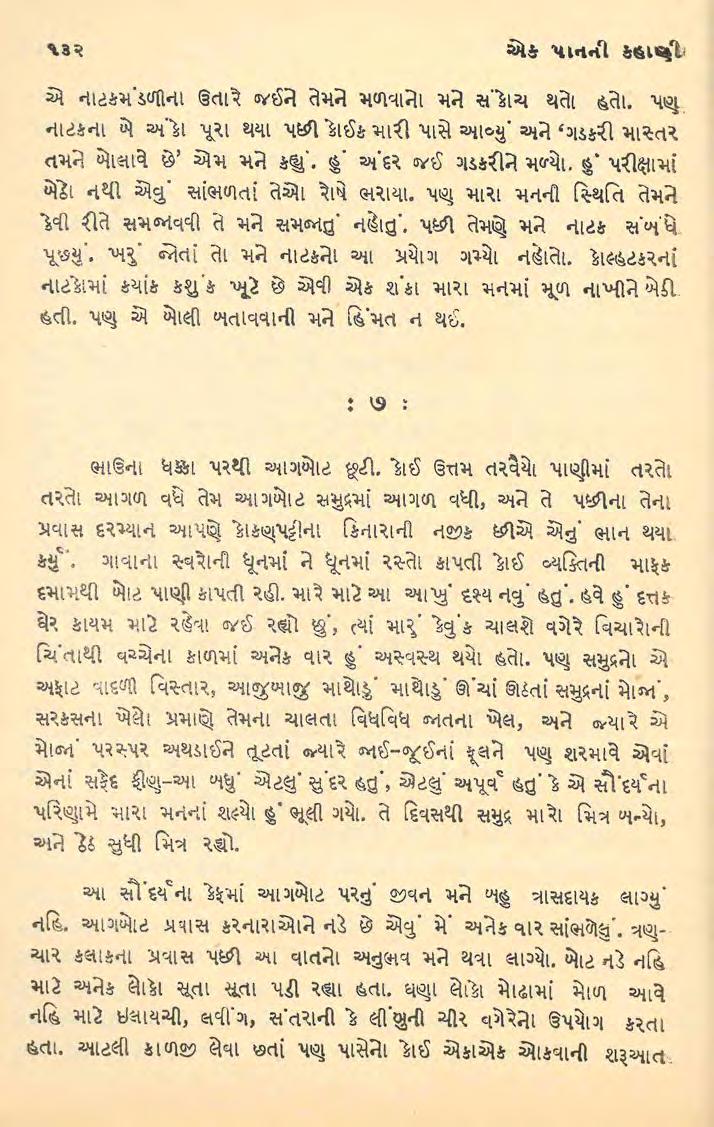 ૧૩૨ એક પાનની કહાણી
એ નાટકમંડળીના ઉતારે જઈને તેમને મળવાનો મને સંકોચ થતો હતો. પણ
નાટકના બે અંકો પૂરા થયા પછી કોઈક મારી પાસે આવ્યું અને ‘ગડકરી માસ્તર
તમને બોલાવે છે’ એમ મને કહ્યું. હું અંદર જઈ ગડકરીને મળ્યો. હું પરીક્ષામાં
બેઠો નથી એવું સાંભળતાં તેઓ રોષે ભરાયા. પણ મારા મનની સ્થિતિ તેમને
કેવી રીતે સમજાવવી તે મને સમજાતું નહોતું. પછી તેમણે મને નાટક સંબંધે
પૂછયું. ખરું જોતાં તો મને નાટકનો આ પ્રયોગ ગમ્યો નહોતો. કોલ્હટકરનાં
નાટકોમાં કયાંક કશુંક ખૂટે છે એવી એક શંકા મારા મનમાં મૂળ નાખીને બેઠી
હતી. પણ એ બોલી બતાવવાની મને હિંમત ન થઈ.
: ૭ :
ભાઉના ધક્કા પરથી આગબોટ છૂટી. કોઈ ઉત્તમ તરવૈયો પાણીમાં તરતો
તરતો આગળ વધે તેમ આગબોટ સમુદ્રમાં આગળ વધી, અને તે પછીના તેના
પ્રવાસ દરમ્યાન આપણે કોકણપટ્ટીના કિનારાની નજીક છીએ એનું ભાન થયા
કર્યું. ગાવાના સ્વરોની ધૂનમાં ને ધૂનમાં રસ્તો કાપતી કોઈ વ્યક્તિની માફક
દમામથી બોટ પાણી કાપતી રહી. મારે માટે આ આખું દશ્ય નવું હતું. હવે હું દત્તક
ઘેર કાયમ માટે રહેવા જઈ રહ્યો છું, ત્યાં મારું કેવુંક ચાલશે વગેરે વિચારોની
ચિંતાથી વચ્ચેના કાળમાં અનેક વાર હું અસ્વસ્થ થયો હતો. પણ સમુદ્રનો એ
અફાટ વાદળી વિસ્તાર, આજુબાજુ માથોડું માથોડું ઊંચાં ઊઠતાં સમુદ્રનાં મોજાં,
સરકસના ખેલો પ્રમાણે તેમના ચાલતા વિધવિધ જાતના ખેલ, અને જ્યારે એ
મોજાં પરસ્પર અથડાઈને તૂટતાં જ્યારે જાઈ-જૂઈનાં ફૂલને પણ શરમાવે એવાં
એનાં સફેદ ફીણ–આ બધું એટલું સુંદર હતું, એટલું અપૂર્વ હતું કે એ સૌંદર્યના
પરિણામે મારા મનનાં શલ્યો હું ભૂલી ગયો. તે દિવસથી સમુદ્ર મારો મિત્ર બન્યો,
અને ઠેઠ સુધી મિત્ર રહ્યો.
આ સૌંદર્યના કેફમાં આગબોટ પરનું જીવન મને બહુ ત્રાસદાયક લાગ્યું
નહિ. આગબોટ પ્રવાસ કરનારાઓને નડે છે એવું મેં અનેક વાર સાંભળેલું. ત્રણ-
ચાર કલાકના પ્રવાસ પછી આ વાતનો અનુભવ મને થવા લાગ્યો. બોટ નડે નહિ
માટે અનેક લોકો સૂતા સૂતા પડી રહ્યા હતા. ઘણા લોકો મોઢામાં મોળ આવે
નહિ માટે ઇલાયચી, લવીંગ, સંતરાની કે લીંબુની ચીર વગેરેનો ઉપયોગ કરતા
હતા. આટલી કાળજી લેવા છતાં પણ પાસેનો કોઈ એકાએક ઓકવાની શરૂઆત